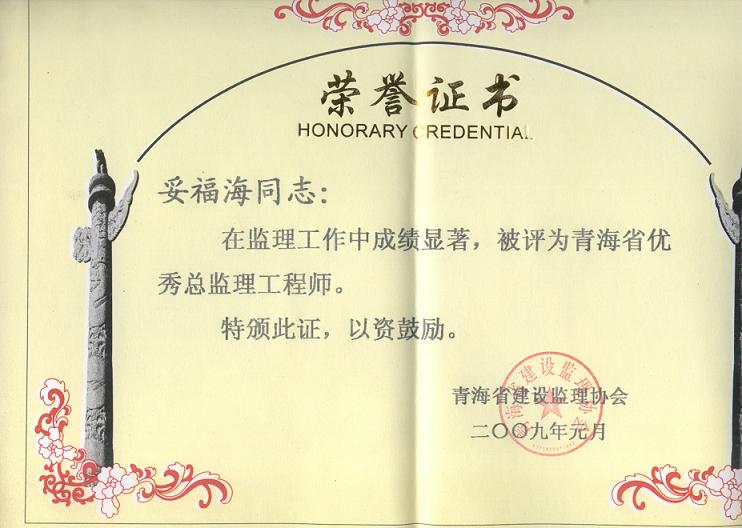 荣誉证书
HONORARY CREDENTIAL
妥福海同志：
在监理工作中成绩显著，被评为青海省优
秀总监理工程师。
特颁此证，以资鼓励。
青海省建设监理协会
二〇〇九年元月
青海省建设监理协会